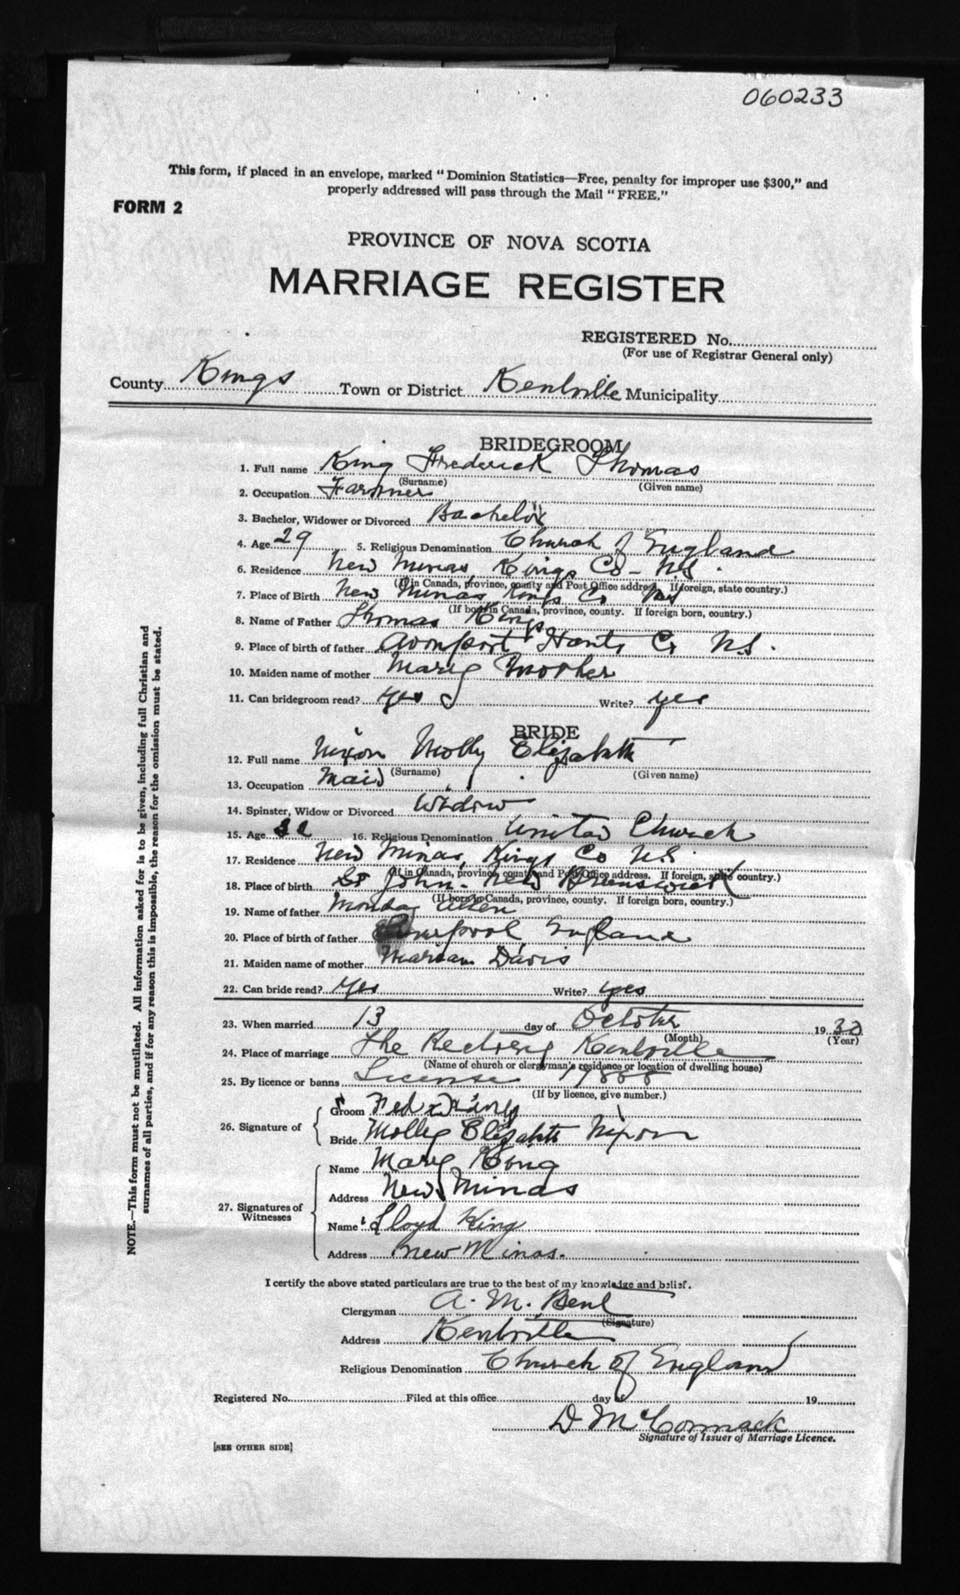 060233
This form, if placed in an envelope, marked "Dominion Statistics—Free, penalty for improper use $300," and
properly addressed will pass through the Mail "FREE."
FORM 2
PROVINCE OF NOVA SCOTIA
MARRIAGE REGISTER
REGISTERED No.
(For use of Registrar General only)
County Kings Town or District Kentville Municipality
BRIDEGROOM
1. Full name King Frederick Thomas
(Surname) (Given name)
2. Occupation Farmer
3. Bachelor, Widower or Divorced Bachelor
4. Age 29 5. Religious Denomination Church of England
6. Residence New Minas Kings Co - N.S.
(If in Canada, province, county and Post Office address. If foreign, state country.)
7. Place of Birth New Minas Kings Co NS
(If born in Canada, province, county. If foreign born, country.)
8. Name of Father Thomas King
9. Place of birth of father Avonport Hants Co NS.
10. Maiden name of mother Mary
11. Can bridegroom read? Yes Write? yes
BRIDE
12. Full name Nixon Molly Elizabeth
(Surname) (Given name)
13. Occupation Maid
14. Spinster, Widow or Divorced Widow
15. Age 16. Religious Denomination United Church
17. Residence New Minas, Kings Co NS
(If in Canada, province, county and Post Office address. If foreign, state country.)
18. Place of birth St John. New Brunswick
(If born in Canada, province, county. If foreign born, country.)
19. Name of father Allen
20. Place of birth of father Liverpool England
21. Maiden name of mother Mariam Davis
22. Can bride read? Yes Write? yes
23. When married 13 day of October 19
(Month) (Year)
24. Place of marriage The Rectory Kentville
(Name of church or clergyman's residence or location of dwelling house)
25. By licence or banns License
(If by licence, give number.)
26. Signature of
Groom King
Bride Molly Elizabeth Nixon
27. Signatures of Witnesses
Name Mary King
Address New Minas
Name Lloyd King
Address New Minas.
I certify the above stated particulars are true to the best of my knowledge and belief.
Clergyman A. M. Bent
(Signature)
Address Kentville
Religious Denomination Church of England
Registered No. Filed at this office day of 19
D McCormack
Signature of Issuer of Marriage Licence.
[SEE OTHER SIDE]
NOTE.—This form must not be mutilated. All information asked for is to be given, including full Christian and
surnames of all parties, and if for any reason this is impossible, the reason for the omission must be stated.